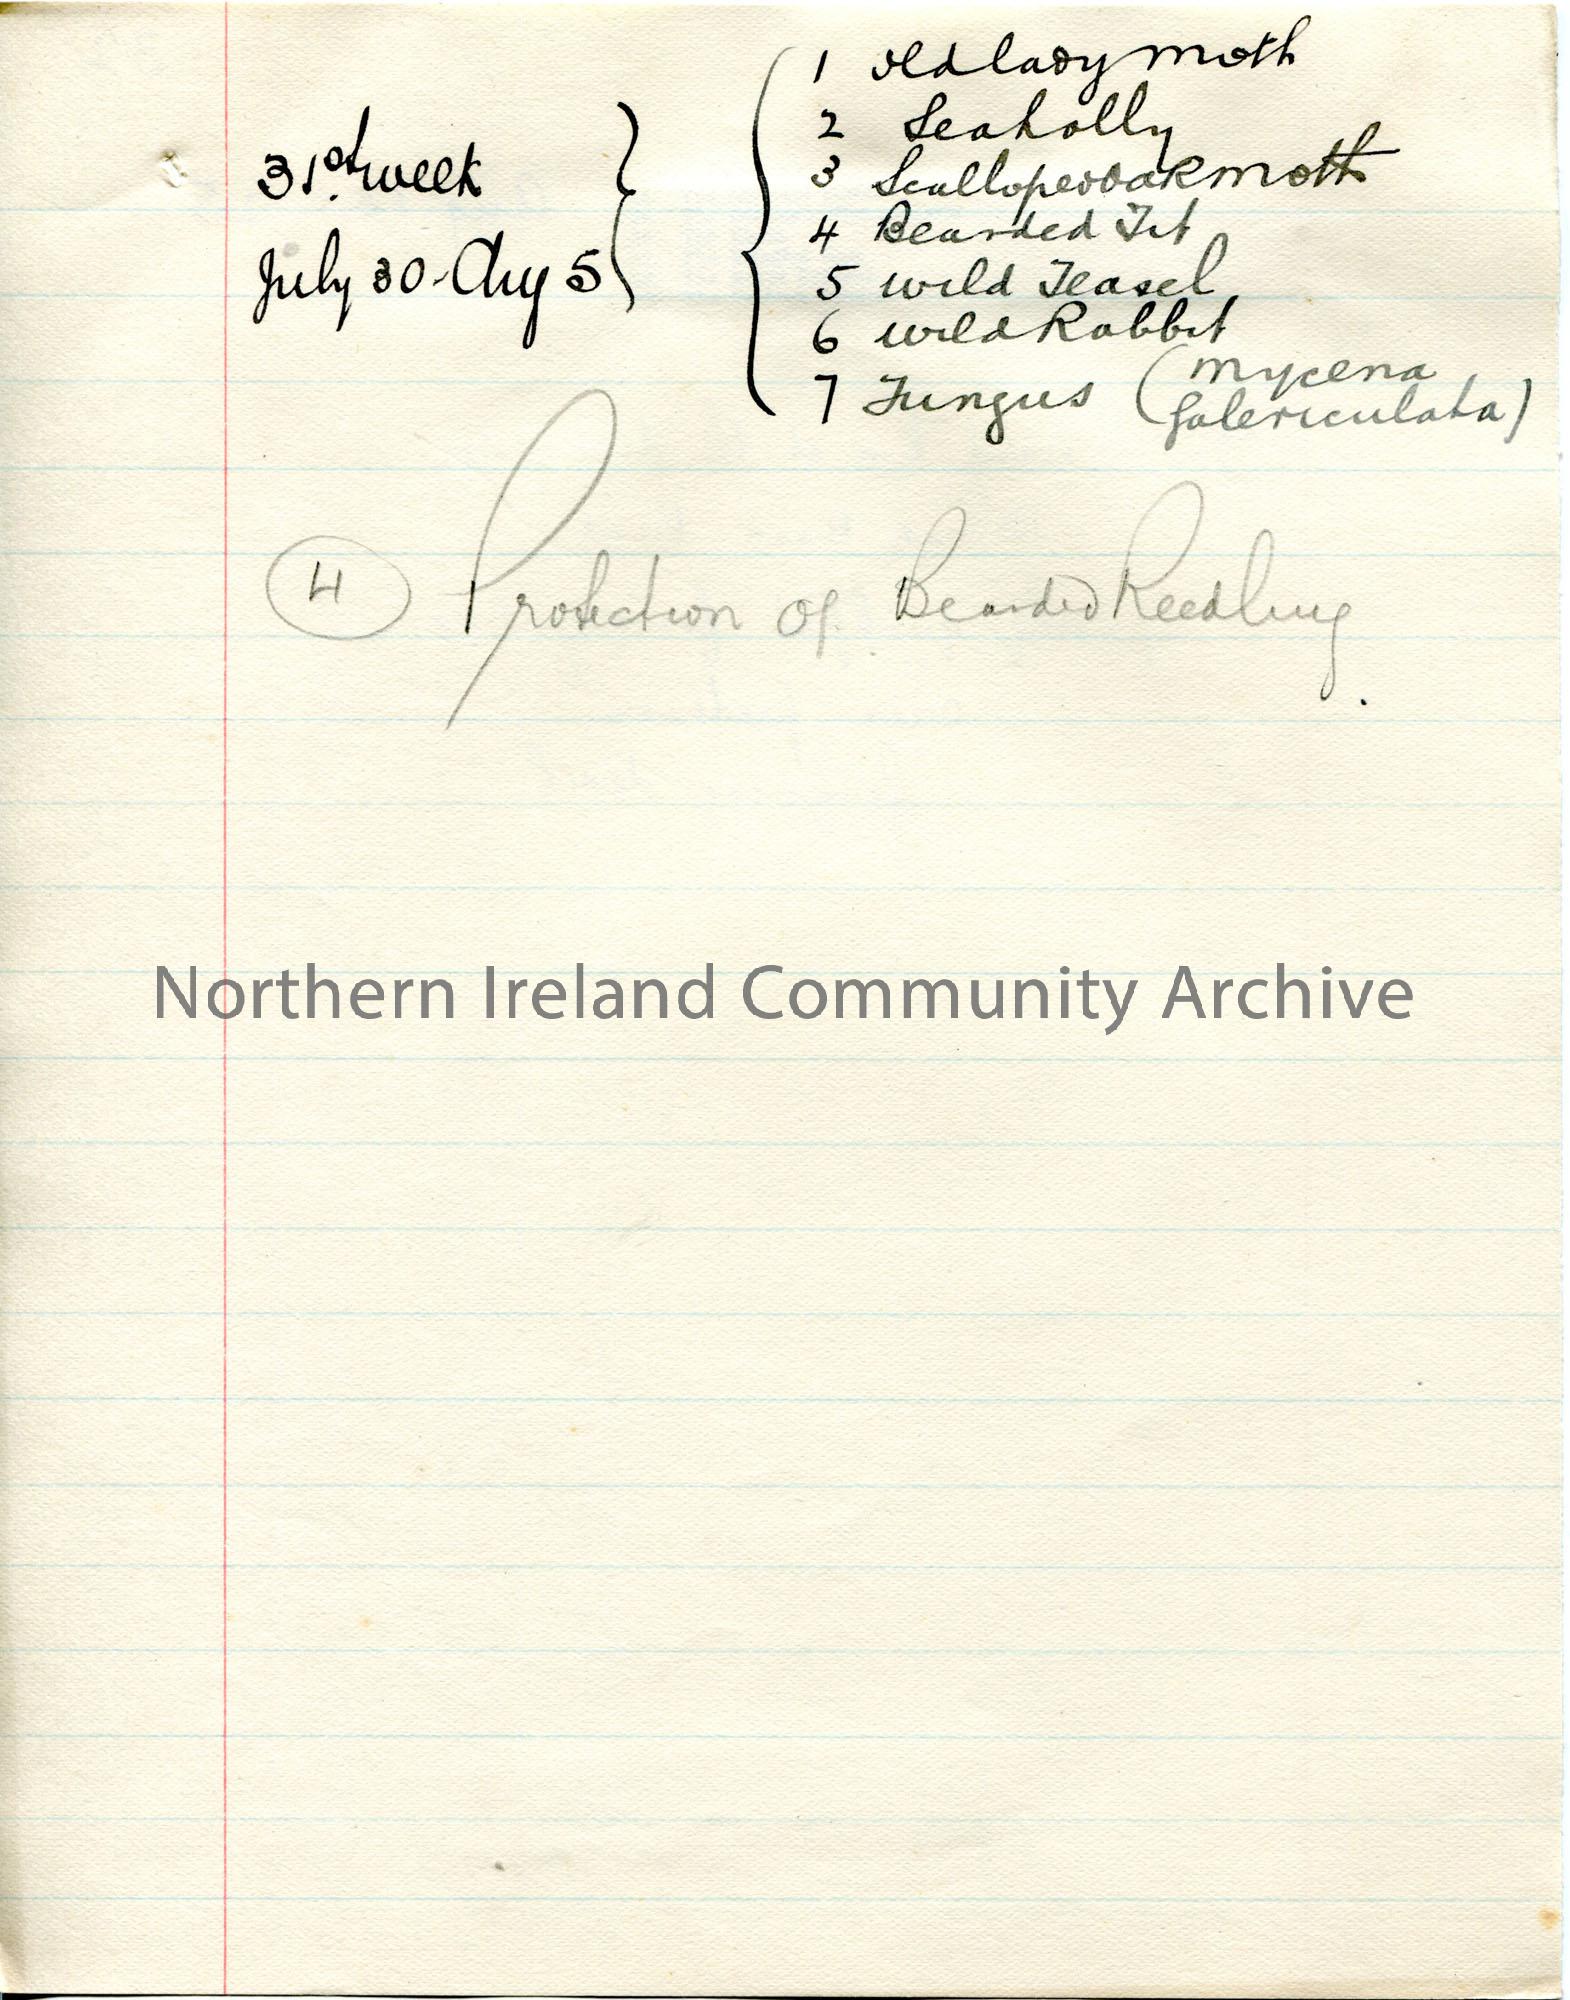 31st week
July 30-Aug 5
1 old lady moth
2 Seaholly
3 Scalloped oak moth
4 Bearded Tit
5 wild Teasel
6 wild Rabbit
7 Fungus (mycena
galericulata)
4 Protection of Bearded Reedling.
Northern Ireland Community Archive